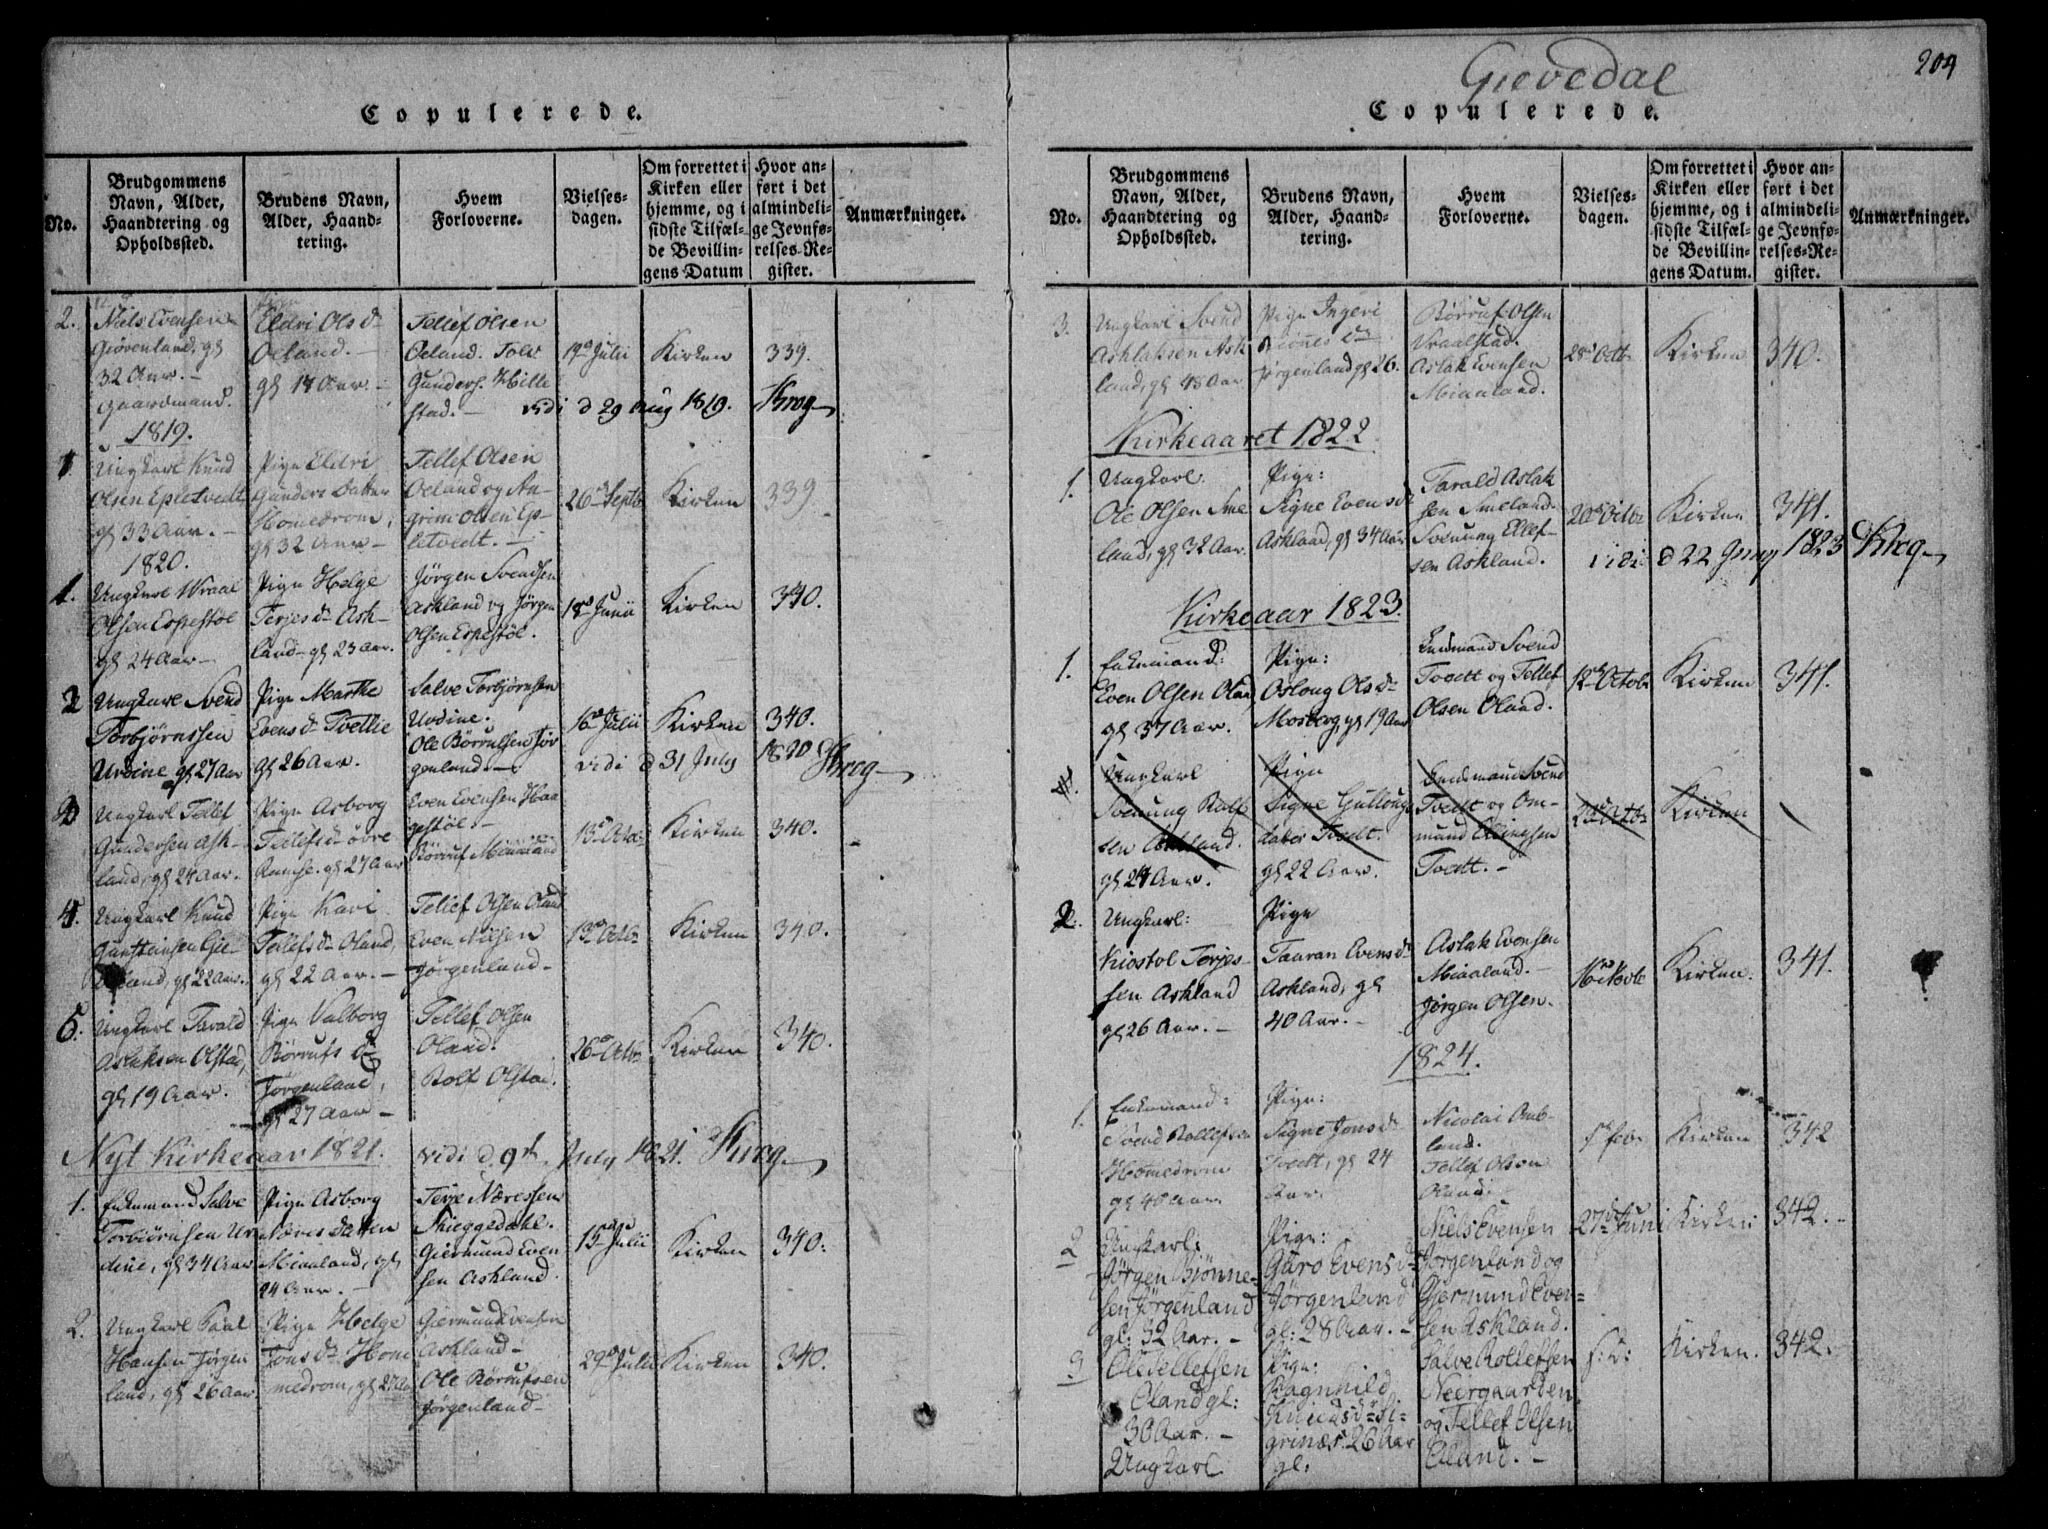 Gievedal
204
Copulerede.
No.
Brudgommens
Navn, Alder,
Haandtering og
Opholdssted.
Brudens Navn,
Alder, Haand-
tering.
Hvem
Forloverne.
Vielses-
dagen.
Om forrettet i
Kirken eller
hjemme, og i
sidste Tilfæl-
de Bevillin-
gens Datum
Hvor an-
ført i det
almindeli-
ge Jevnfø-
relses-Re-
gister.
Anmærkninger.
2.
Niels Evensen
Giøvenland, gl
32 Aar. -
Gaardmand.
Eldri Ols d.
Oeland. -
gl 18 Aar. -
Tellef Olsen
Oeland. Tolv
Gunders. Hille
stad. -
19de Julii
Kirken
339.
vidi d 29 Aug 1819. Krog
1819.
1
Ungkarl Knud
Olsen Epletvedt,
gl 33 Aar. -
Pige Eldri
Gunders Datter
Homedrom,
gl 32 Aar -
Tellef Olsen
Oeland og An-
grim Olsen Ep-
letvedt. -
26de Septb
Kirken
339.
1820.
1.
Ungkarl Wraal
Olsen Espestøl
gl 24 Aar -
Pige Helge
Terjes d. Ask-
land - gl 23 Aar.
Jørgen Svendsen
Askland og Jørgen
Olsen Espestøl.
18de Junii
Kirken
340.
2
Ungkarl Svend
Torbjørnssen
Urdine gl 27 Aar
Pige Marthe
Evens d. Tveitlie
gl 26 Aar.
Salve Torbjørnsen
Urdine.
Ole Børrulfsen Jør
genland. -
16de Julii
Kirken
340.
vidi d 31 July 1820 Krog
3
Ungkarl Tellef
Gundersen Ask-
land, gl 24 Aar.
Pige Asborg
Tellefs d. øvre
Ramse. gl 27 Aar
Even Evensen Haa
gestøl. -
Børruf Miaaland
13de Octb
Kirken
340.
4.
Ungkarl Knud
Gunstensen Gie-
land, gl 22 Aar.
Pige Kari
Tellefs d. Oland,
gl 22 Aar. -
Tellef Olsen Oland
Even Nilsen
Jørgenland -
13de Octb
Kirken
340.
5.
Ungkarl Tarald
Aslaksen Olstad,
gl 19 Aar.
Pige Valborg
Børrufs d.
Jørgenland,
gl 27 Aar -
Tellef Olsen
Oland.
Rolf Olstad.
26de Octb
Kirken
340.
Nyt Kirkeaar 1821. vidi d 9d July 1821. Krog
1.
Enkemand Salve
Torbiørnsen Ur
dine, gl 34 Aar
Pige Asborg
Næres Datter
Miaaland, gl
24 Aar. -
Terje Næressen
Skieggedahl.
Giermund Even
sen Askland.
15de Julii
Kirken
340.
2.
Ungkarl Paal
Hansen Jørgen
land, gl 26 Aar.
Pige Helge
Jons d. Home
medrom, gl 27 Aar
Giermund Evensen
Askland -
Ole Børrufsen
Jørgenland -
29de Julii
Kirken
340.
Copulerede.
No.
Brudgommens
Navn, Alder,
Haandtering og
Opholdssted.
Brudens Navn,
Alder, Haand-
tering.
Hvem
Forloverne.
Vielses-
dagen.
Om forrettet i
Kirken eller
hjemme, og i
sidste Tilfæl-
de Bevillin-
gens Datum.
Hvor an-
ført i det
almindeli-
ge Jevnfø-
relses-Re-
gister.
Anmærkninger.
3.
Ungkarl Svend
Aslaksen Ask
land, gl 48 Aar.
Pige Ingeri
Biønnes d.
Jørgenland gl 26.
Børruf Olsen
Vraalstad.
Aslak Evensen
Miaaland.
28de Octb
Kirken
340.
Kirkeaaret 1822.
1.
Ungkarl.
Ole Olsen Sme
land, gl 32 Aar.
Pige:
Signe Evens d.
Askland, gl 34 Aar
Tarald Aslak
sen Smeland.
Svenung Ellef-
sen Askland.
20de Octb
Kirken
341.
vidi d 22 Juny 1823 Krog
Kirkeaar 1823.
1.
Enkemand:
Even Olsen Oland,
gl 37 Aar.
Pige:
Oslong Ols d.
Mosberg, gl 19 Aar
Lensmand Svend
Tvedt og Tellef
Olsen Oland.
12de Octob
Kirken
341.
Ungkarl
Svenung Rolf
sen Askland.
gl 24 Aar.
Pige
Signe Gullougs
datter Tvedt.
gl 22 Aar.
Lensmand Svend
Tvedt og Om-
mund
Tvedt. -
Kirken
2.
Ungkarl:
Kiostol Terjes-
sen Askland
gl 26 Aar. -
Pige
Tauran Evens d.
Askland, gl
40 Aar. -
Aslak Evensen
Miaaland. -
Jørgen Olsen.
16de Novb
Kirken.
341.
1824.
1.
Enkemand:
Svend Rollefsen
Homedrom
gl 40 Aar.
Pige:
Signe Jons d.
Tvedt, gl 24
Aar.
Nicolai Omb-
land.
Tellef Olsen
Oland.
Kirken
342
2
Ungkarl:
Jørgen Bjønne-
sen Jørgenland
gl: 32 Aar. -
Pige:
Guro Evens d.
Jørgenland
gl: 28 Aar. -
Niels Evensen
Jørgenland og
Gjermund Even-
sen Askland.
27de Juni
Kirken:
342. -
3
Ole Tellefsen
Oland gl:
30 Aar. -
Ungkarl
Pige:
Ragnhild
Knuds d. Si-
grinæs. 26 Aar
gl:
Salve Rollefsen
Neergaarden
og Tellef Olsen
Oland. -
s: D:
Kirken.
342.